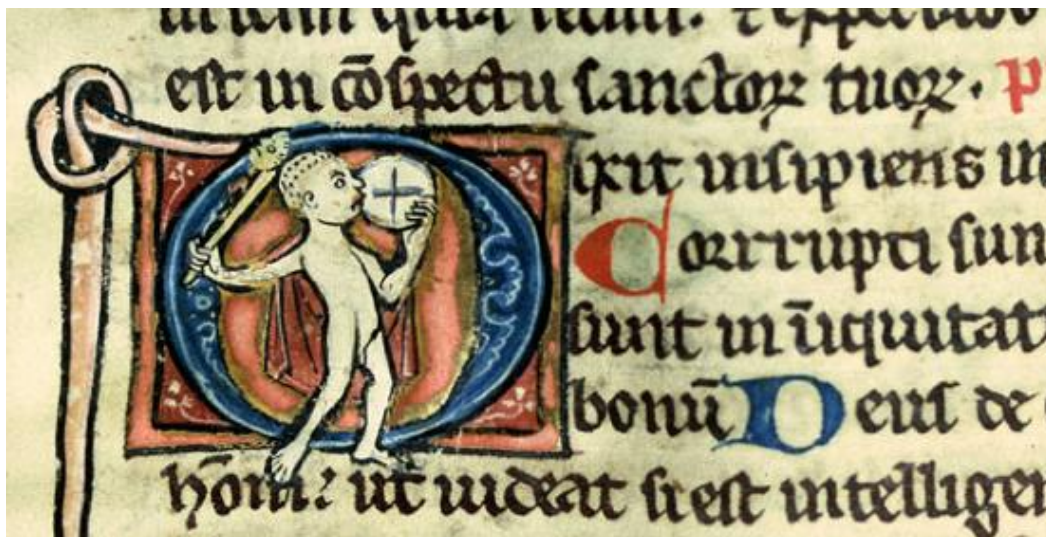 est in cōspectu sanctoꝝ tuoꝝ. p
Dixit insipiens in
Corrupti sun
sunt in īiquitat
bonū Deus de
hōnı: ut uideat si est intelligen